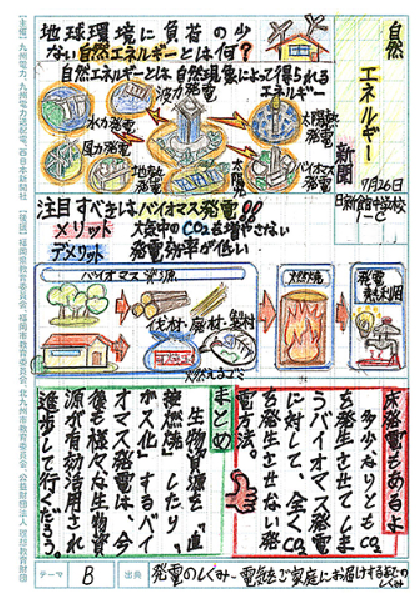 自然
エネルギー
新聞
7月26日
日新館中学校
1-C
地球環境に負荷の少
ない自然エネルギーとは何?
自然エネルギーとは自然現象によって得られる
エネルギー
波力発電
水力発電
太陽光
発電
風力発電
地熱
発電
太陽
バイオマス
発電
注目すべきはバイオマス発電!!
メリット
大気中のCO2を増やさない
デメリット
発電効率が低い
バイオマス資源
伐材・廃材・農材
燃えるゴミ
燃焼
発電
熱利用
成発電もあるよ
多少なりともCO2
を発生させてしま
うバイオマス発電
に対して、全くCO2
を発生させない発
電方法。
まとめ
生物資源を「直
接燃焼」したり、
「ガス化」するバイ
オマス発電は、今
後も様々な生物資
源が有効活用され
進歩して行くだろう。
テーマ
B
出典
発電のしくみー電気をご家庭にお届けするまでの
しくみ
【主催】九州電力、九州電力送配電、西日本新聞社
【後援】福岡県教育委員会、福岡市教育委員会、北九州市教育委員会、公益財団法人 理想教育財団